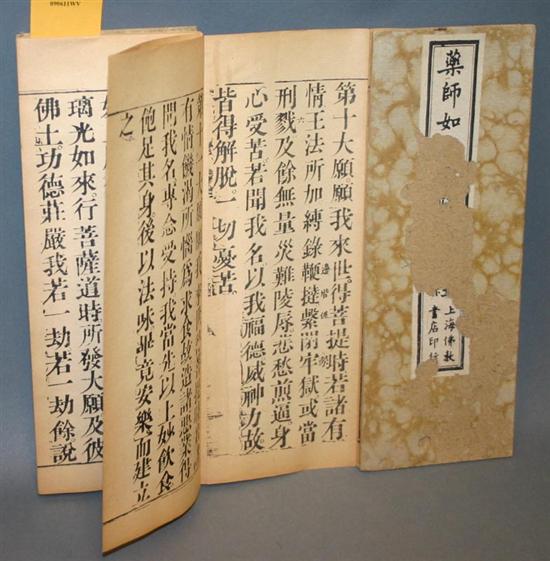 藥師如
上海佛教
書店印行
第十大願願我來世得菩提時若諸有
情王法所加縛錄鞭撻繫閉牢獄或當
刑戮及餘無量災難陵辱悲愁煎逼身
心受苦若聞我名以我福德威神力故
皆得解脫一切憂苦
有情饑渴所惱爲求食故造諸惡業得
聞我名專念受持我當先以上妙飲食
飽足其身後以法味畢竟安樂而建立
之
璃光如來行菩薩道時所發大願及彼
佛土功德莊嚴我若一劫若一劫餘說